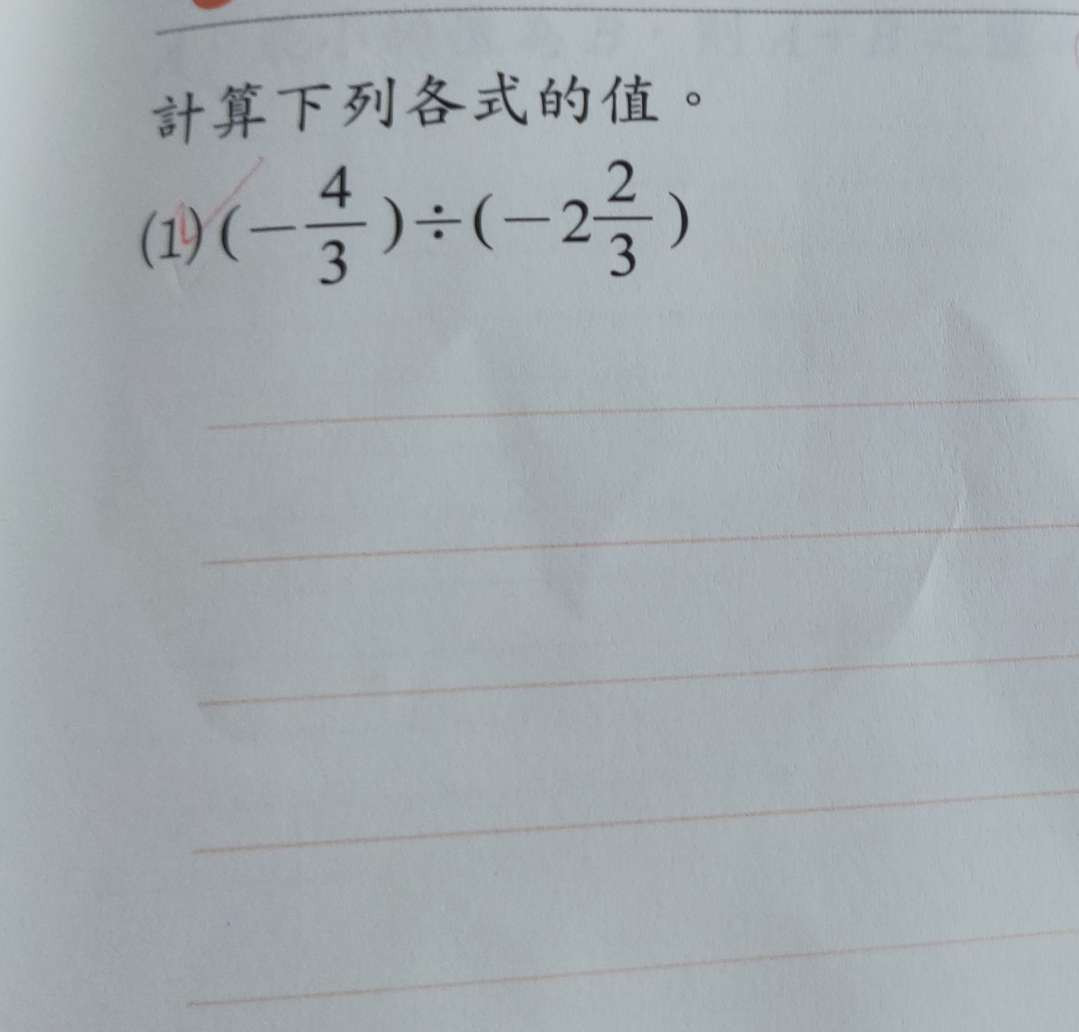 計算下列各式的值。
(1) (−4/3)÷(−2 2/3)